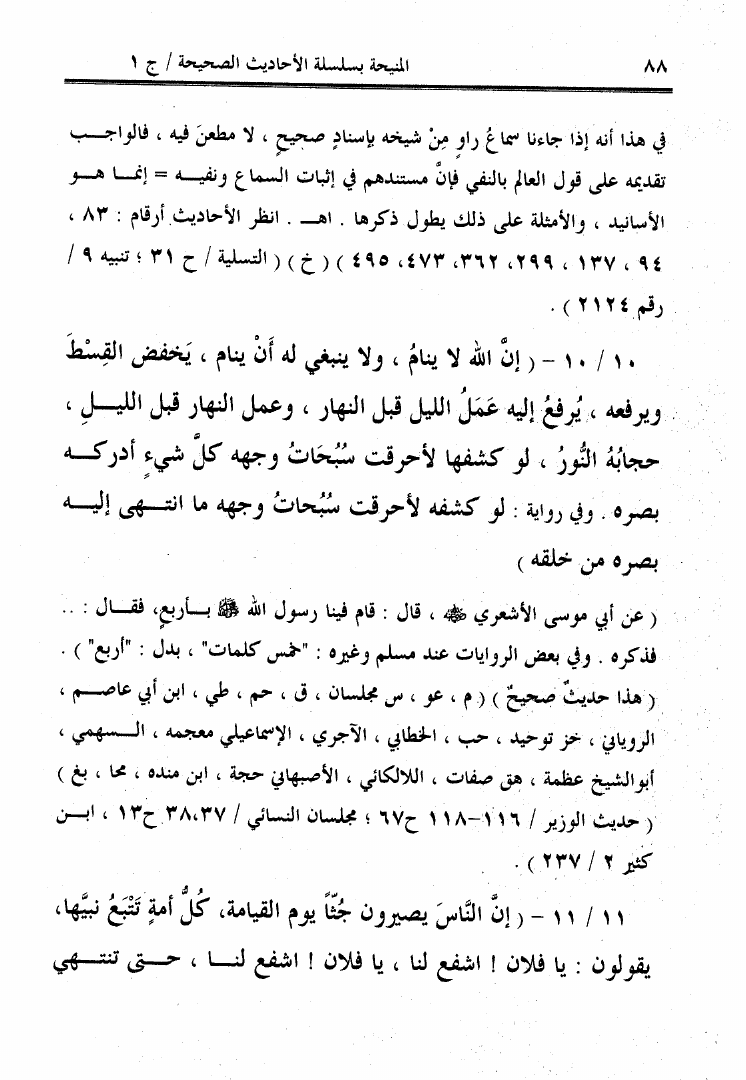 ٨٨ المنيحة بسلسلة الأحاديث الصحيحة / ج ١
في هذا أنه إذا جاءنا سماعُ راوٍ مِنْ شيخه بإسنادٍ صحيحٍ ، لا مطعنَ فيه ، فالواجب
تقديمه على قول العالم بالنفي فإنَّ مستندهم في إثبات السماع ونفيه = إنما هو
الأسانيد ، والأمثلة على ذلك يطول ذكرها . اهـ . انظر الأحاديث أرقام : ٨٣ ،
٩٤ ، ١٣٧ ، ٢٩٩، ٣٦٢، ٤٧٣، ٤٩٥ ) ( خ ) ( التسلية / ح ٣١ ؛ تنبيه ٩ /
رقم ٢١٢٤ ) .
١٠ / ١٠ - ( إنَّ الله لا ينامُ ، ولا ينبغي له أَنْ ينام ، يَخفض القِسْطَ
ويرفعه ، يُرفعُ إليه عَمَلُ الليل قبل النهار ، وعمل النهار قبل الليلِ ،
حجابُهُ النُّورُ ، لو كشفها لأحرقت سُبُحَاتُ وجهه كلَّ شيءٍ أدركه
بصره . وفي رواية : لو كشفه لأحرقت سُبُحاتُ وجهه ما انتهى إليه
بصره من خلقه )
( عن أبي موسى الأشعري ﷺ ، قال : قام فينا رسول الله ﷺ بأربعٍ، فقال : ..
فذكره . وفي بعض الروايات عند مسلم وغيره : "خمس كلمات" ، بدل : "أربع" ) .
( هذا حديثٌ صحيحٌ ) ( م ، عو ، س مجلسان ، ق ، حم ، طي ، ابن أبي عاصم ،
الروياني ، خز توحيد ، حب ، الخطابي ، الآجري ، الإسماعيلي معجمه ، السهمي ،
أبوالشيخ عظمة ، هق صفات ، اللالكائي ، الأصبهاني حجة ، ابن منده ، محا ، بغ )
( حديث الوزير / ١١٦-١١٨ ح٦٧ ؛ مجلسان النسائي / ٣٧،٣٨ ح١٣ ، ابن
كثير ٢ / ٢٣٧ ) .
١١ / ١١ - ( إنَّ النَّاسَ يصيرون جُثّاً يوم القيامة، كُلُّ أمةٍ تَتْبَعُ نبيَّها،
يقولون : يا فلان ! اشفع لنا ، يا فلان ! اشفع لنا ، حتى تنتهي